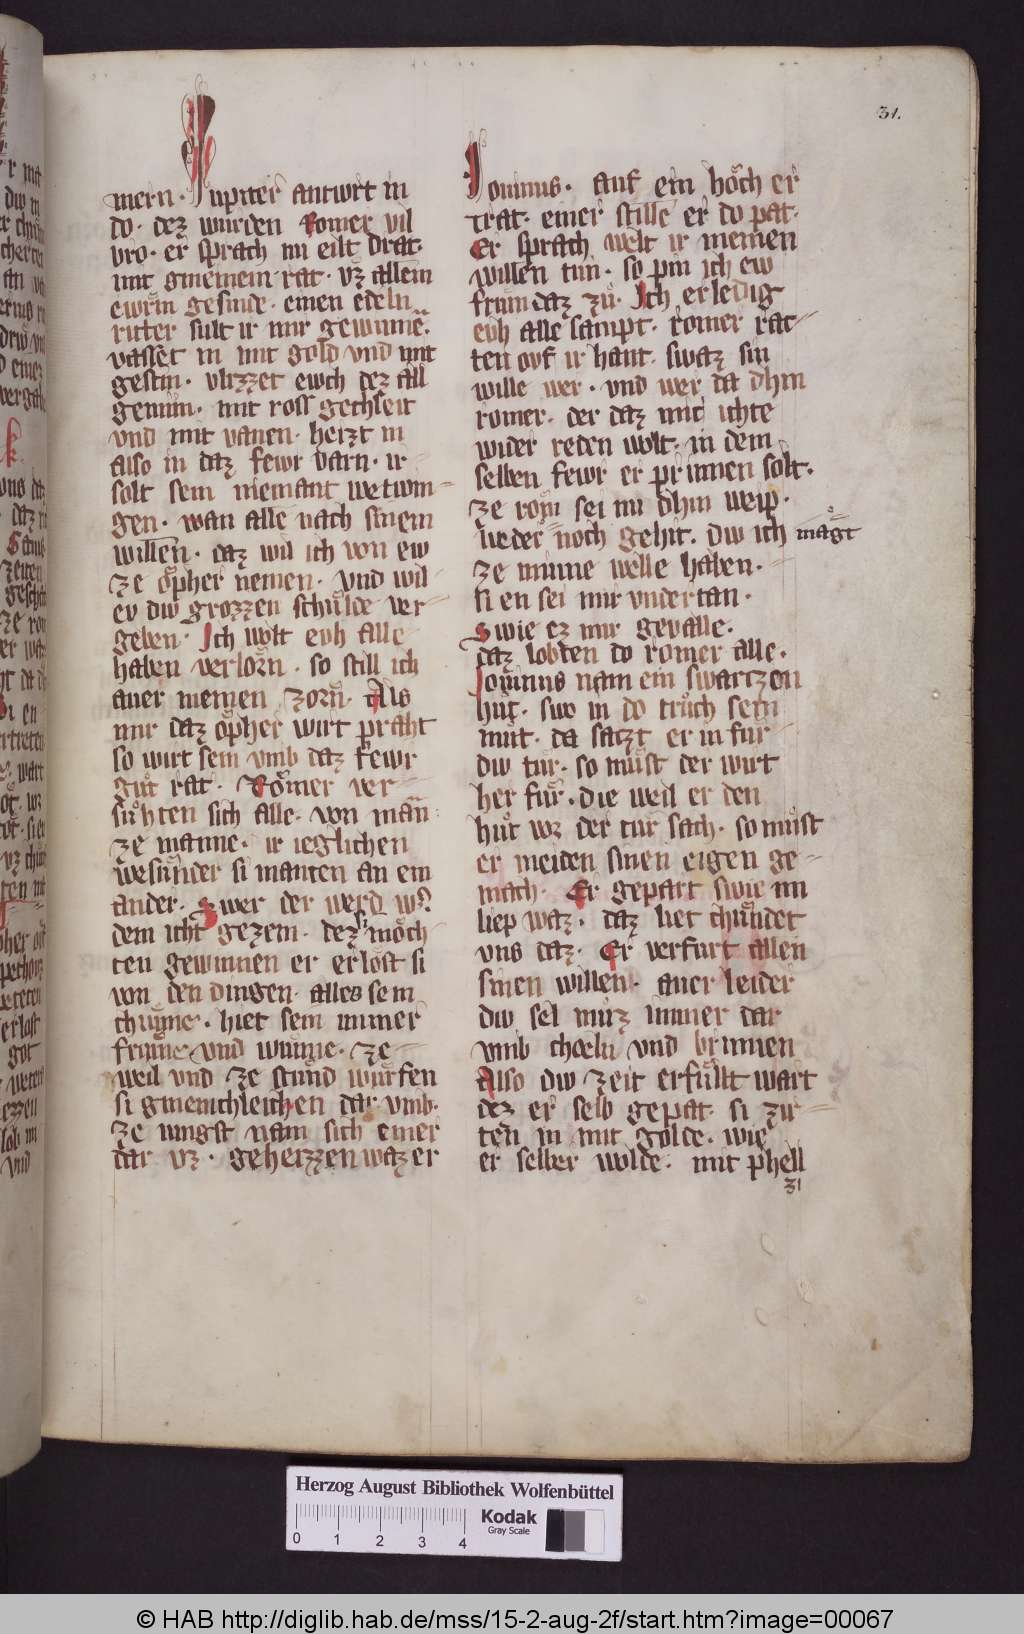 31.
mern · Jupiter antwrt in
do · dez wurden Romer vil
vro · er sprach nu eilt drat·
mit gmeinem rat · vz allem
ewrm gesinde · einen edeln
ritter sult ir mir gewinnē.
vasset in mit gold vnd mit
gestin · vlizzet ewch dez all
gemin · mit ross gechleit
vnd mit vanen · heizt in
also in daz fewr varn · ir
solt sein niemant wetwin-
gen · wan alle nach sinem
willen · daz wil ich von ew
ze opher nemen · vnd wil
ev diw grozzen schulde ver-
geben · Jch wolt evh alle
haben verlorn · so still ich
auer meinen zorn · Als
mir daz opher wirt praht
so wirt sein vmb daz fewr
gůt rat · Romer ver-
sůhten sich alle · von man
ze manne · ir ieglichen
wesunder si manten an ein
ander · Swer der werd wer
dem icht gezem · dez moch
ten gewinnen er erlost si
von den dingen · alles sein
chunne · hiet sein immer
frume vnd wunne · ze
weil vnd ze stund wurfen
si gmeinchleichen dar vmb·
ze iungst nam sich einer
dar vz · geheizzen waz er
Jouinus · auf ein hoch er
trat · einer stille er do pat·
Er sprach welt ir meinen
willen tun · so pin ich ew
frum daz zu · Jch erledig
evh alle sampt · romer rat-
ten ovf ir hant · swaz sin
wille wer · vnd wer da dhin
romer · der daz mit ichte
wider reden wolt · in dem
selben fewr er prinnen solt·
ze rom sei nu dhin weip·
weder noch gehit · diw ich magt
ze minne welle haben ·
si en sei mir vndertan ·
Swie ez mir geualle·
daz lobten do romer alle·
Jouinus nam ein swartzen
hůt · swo in do trůch sein
můt · da satzt er in fur
diw tur · so můst der wirt
her fur · die weil er den
hůt vor der tur sach · so můst
er meiden sinen eigen ge-
mach · Er gepart swie im
liep waz · daz liet chundet
vns daz · Er verfurt allen
sinen willen · auer leider
diw sel můz immer dar
vmb choeln vnd brinnen
Also diw zeit erfullt wart
dez er selb gepat · si zir-
ten in mit golde · wie
er selber wolde · mit phell
31
Herzog August Bibliothek Wolfenbüttel
0 1 2 3 4
Kodak
Gray Scale
© HAB http://diglib.hab.de/mss/15-2-aug-2f/start.htm?image=00067